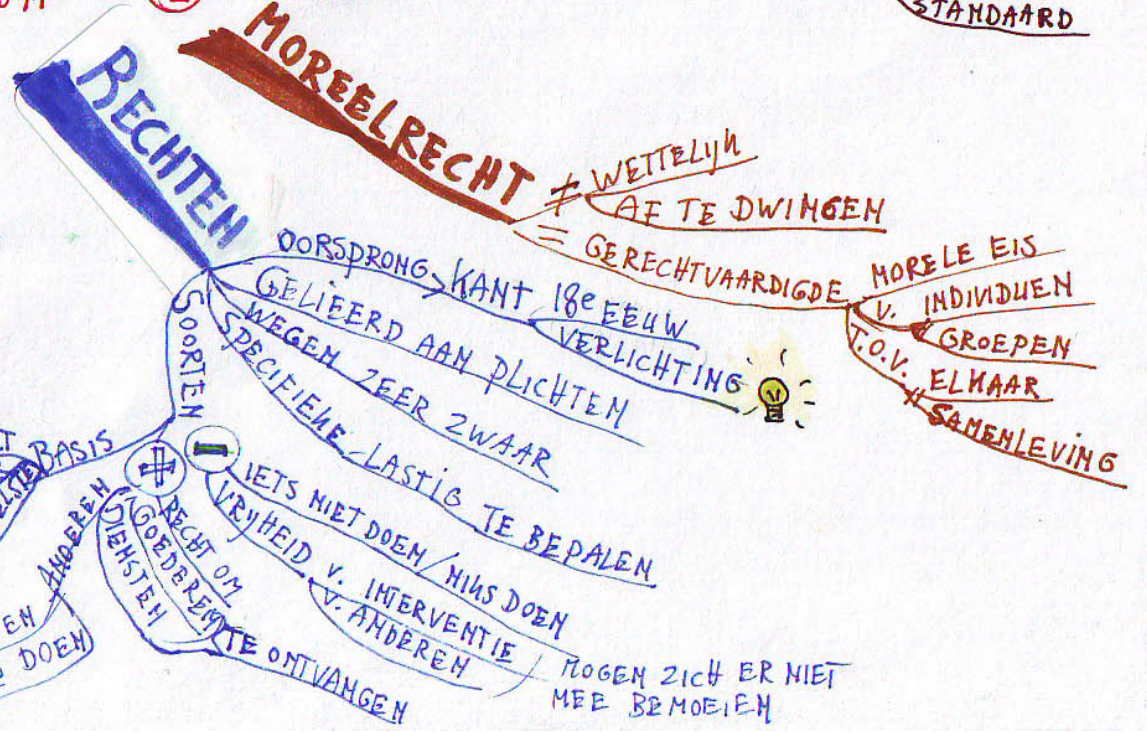 STANDAARD
MOREELRECHT
≠ WETTELIJK
AF TE DWINGEN
= GERECHTVAARDIGDE
MORELE EIS
V. INDIVIDUEN
GROEPEN
T.O.V. ELKAAR
SAMENLEVING
RECHTEN
OORSPRONG → KANT 18e EEUW
VERLICHTING
GELIEERD AAN PLICHTEN
WEGEN ZEER ZWAAR
SPECIFIEKE - LASTIG TE BEPALEN
SOORTEN
−
IETS NIET DOEN / NIKS DOEN
VRIJHEID V. INTERVENTIE
V. ANDEREN
MOGEN ZICH ER NIET
MEE BEMOEIEN
+
RECHT OM
GOEDEREN
DIENSTEN
TE ONTVANGEN
ANDEREN
EN
DOEN
BASIS